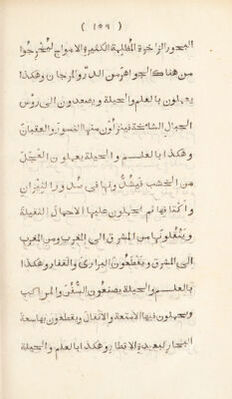 ( ١٥٩ )
البحور الزاخرة المظلمة الكثيرة الامواج ليخرجوا
من هناك الجواهر من الدر والمرجان وهكذا
يعملون بالعلم والحيلة ويصعدون الى روس
الجبال الشامخة فينزلون منها النسور والعقبان
وهكذا بالعلم والحيلة يعملون العجل
من الخشب فيشدونها في صدور الثيران
واكتافها ثم يحملون عليها الاحمال الثقيلة
وينقلونها من المشرق الى المغرب ومن المغرب
الى المشرق ويقطعون البراري والقفار وهكذا
بالعلم والحيلة يصنعون السفن والمراكب
ويحملون فيها الامتعة والاثقال ويقطعون بها سعة
البحار البعيدة الاقطار وهكذا بالعلم والحيلة